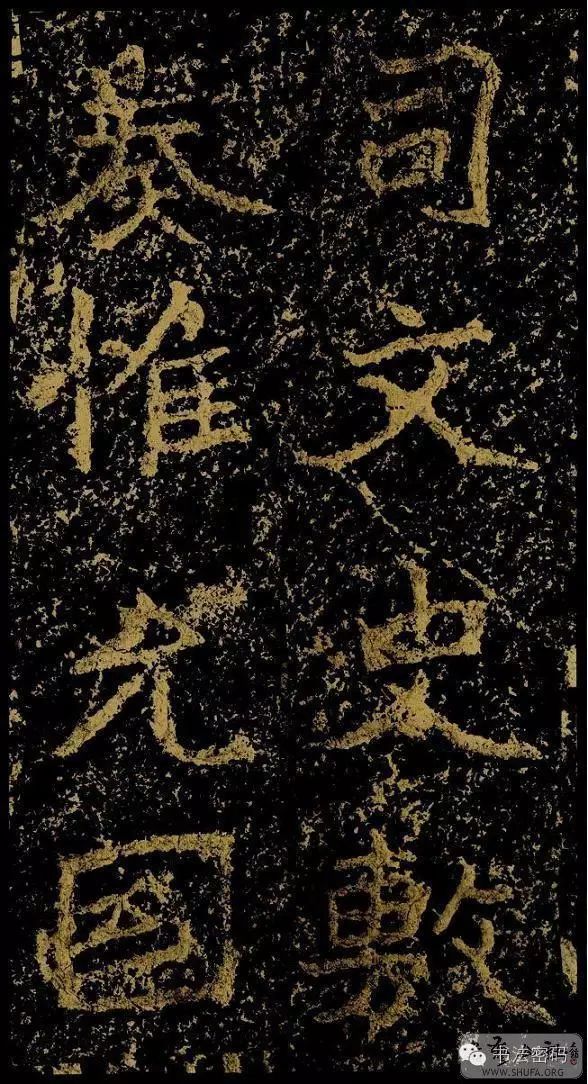 司文史敷
奏惟允國
书法密码
WWW.SHUFA.ORG